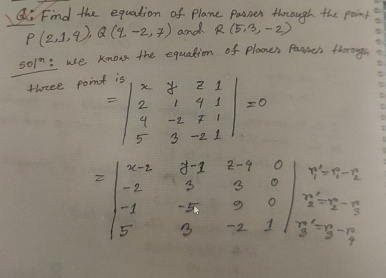 Q: Find the equation of plane passes through the point
P (2,1,4), Q (4,-2,7) and R (5,3,-2)
Soln: We know the equation of planes passes through
three point is
= | x y z 1 |
| 2 1 4 1 | = 0
| 4 -2 7 1 |
| 5 3 -2 1 |
= | x-2 y-1 z-4 0 | r₁'=r₁-r₂
| -2 3 3 0 | r₂'=r₂-r₃
| -1 -5 9 0 | r₃'=r₃-r₄
| 5 3 -2 1 |